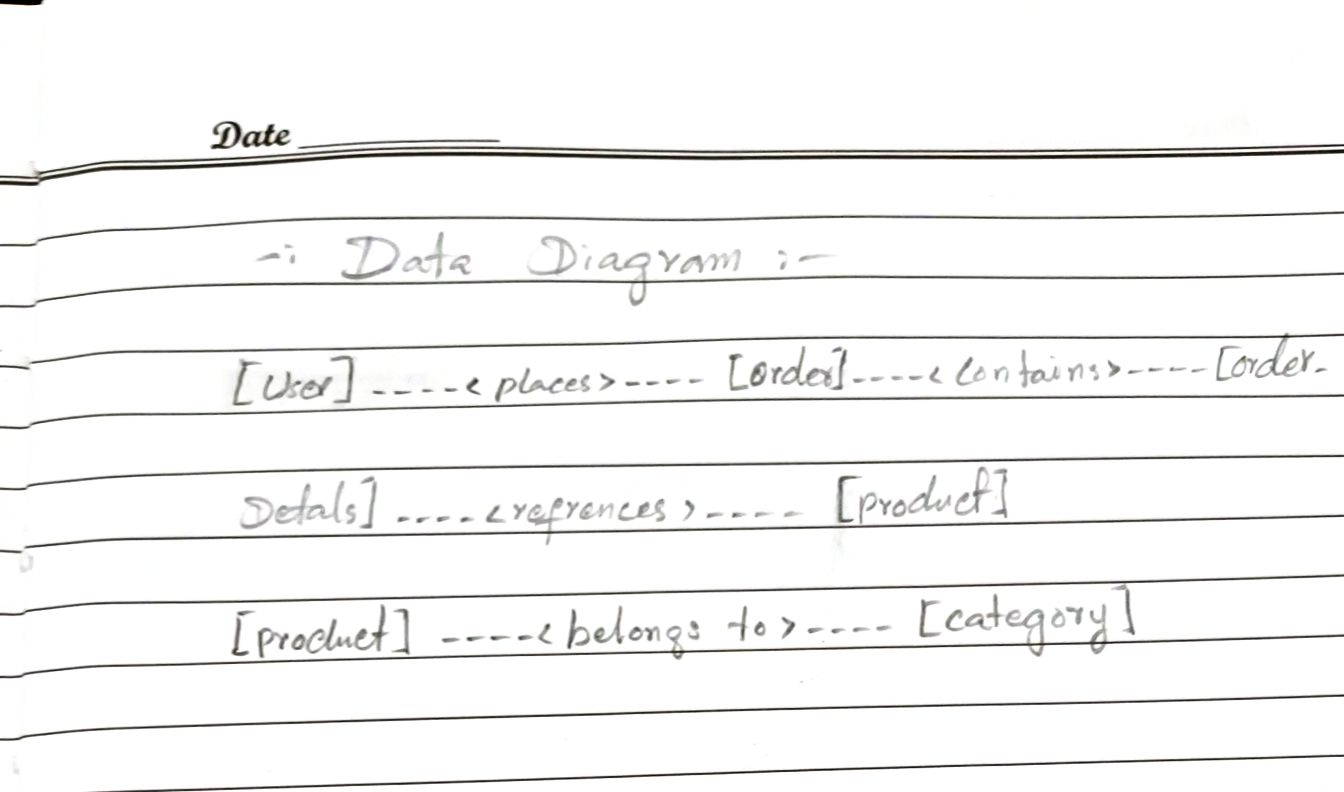 Date
-: Data Diagram :-
[User] ----< places >---- [order] ----< contains >---- [order-
Detals] ----< refrences >---- [product]
[product] ----< belongs to >---- [category]